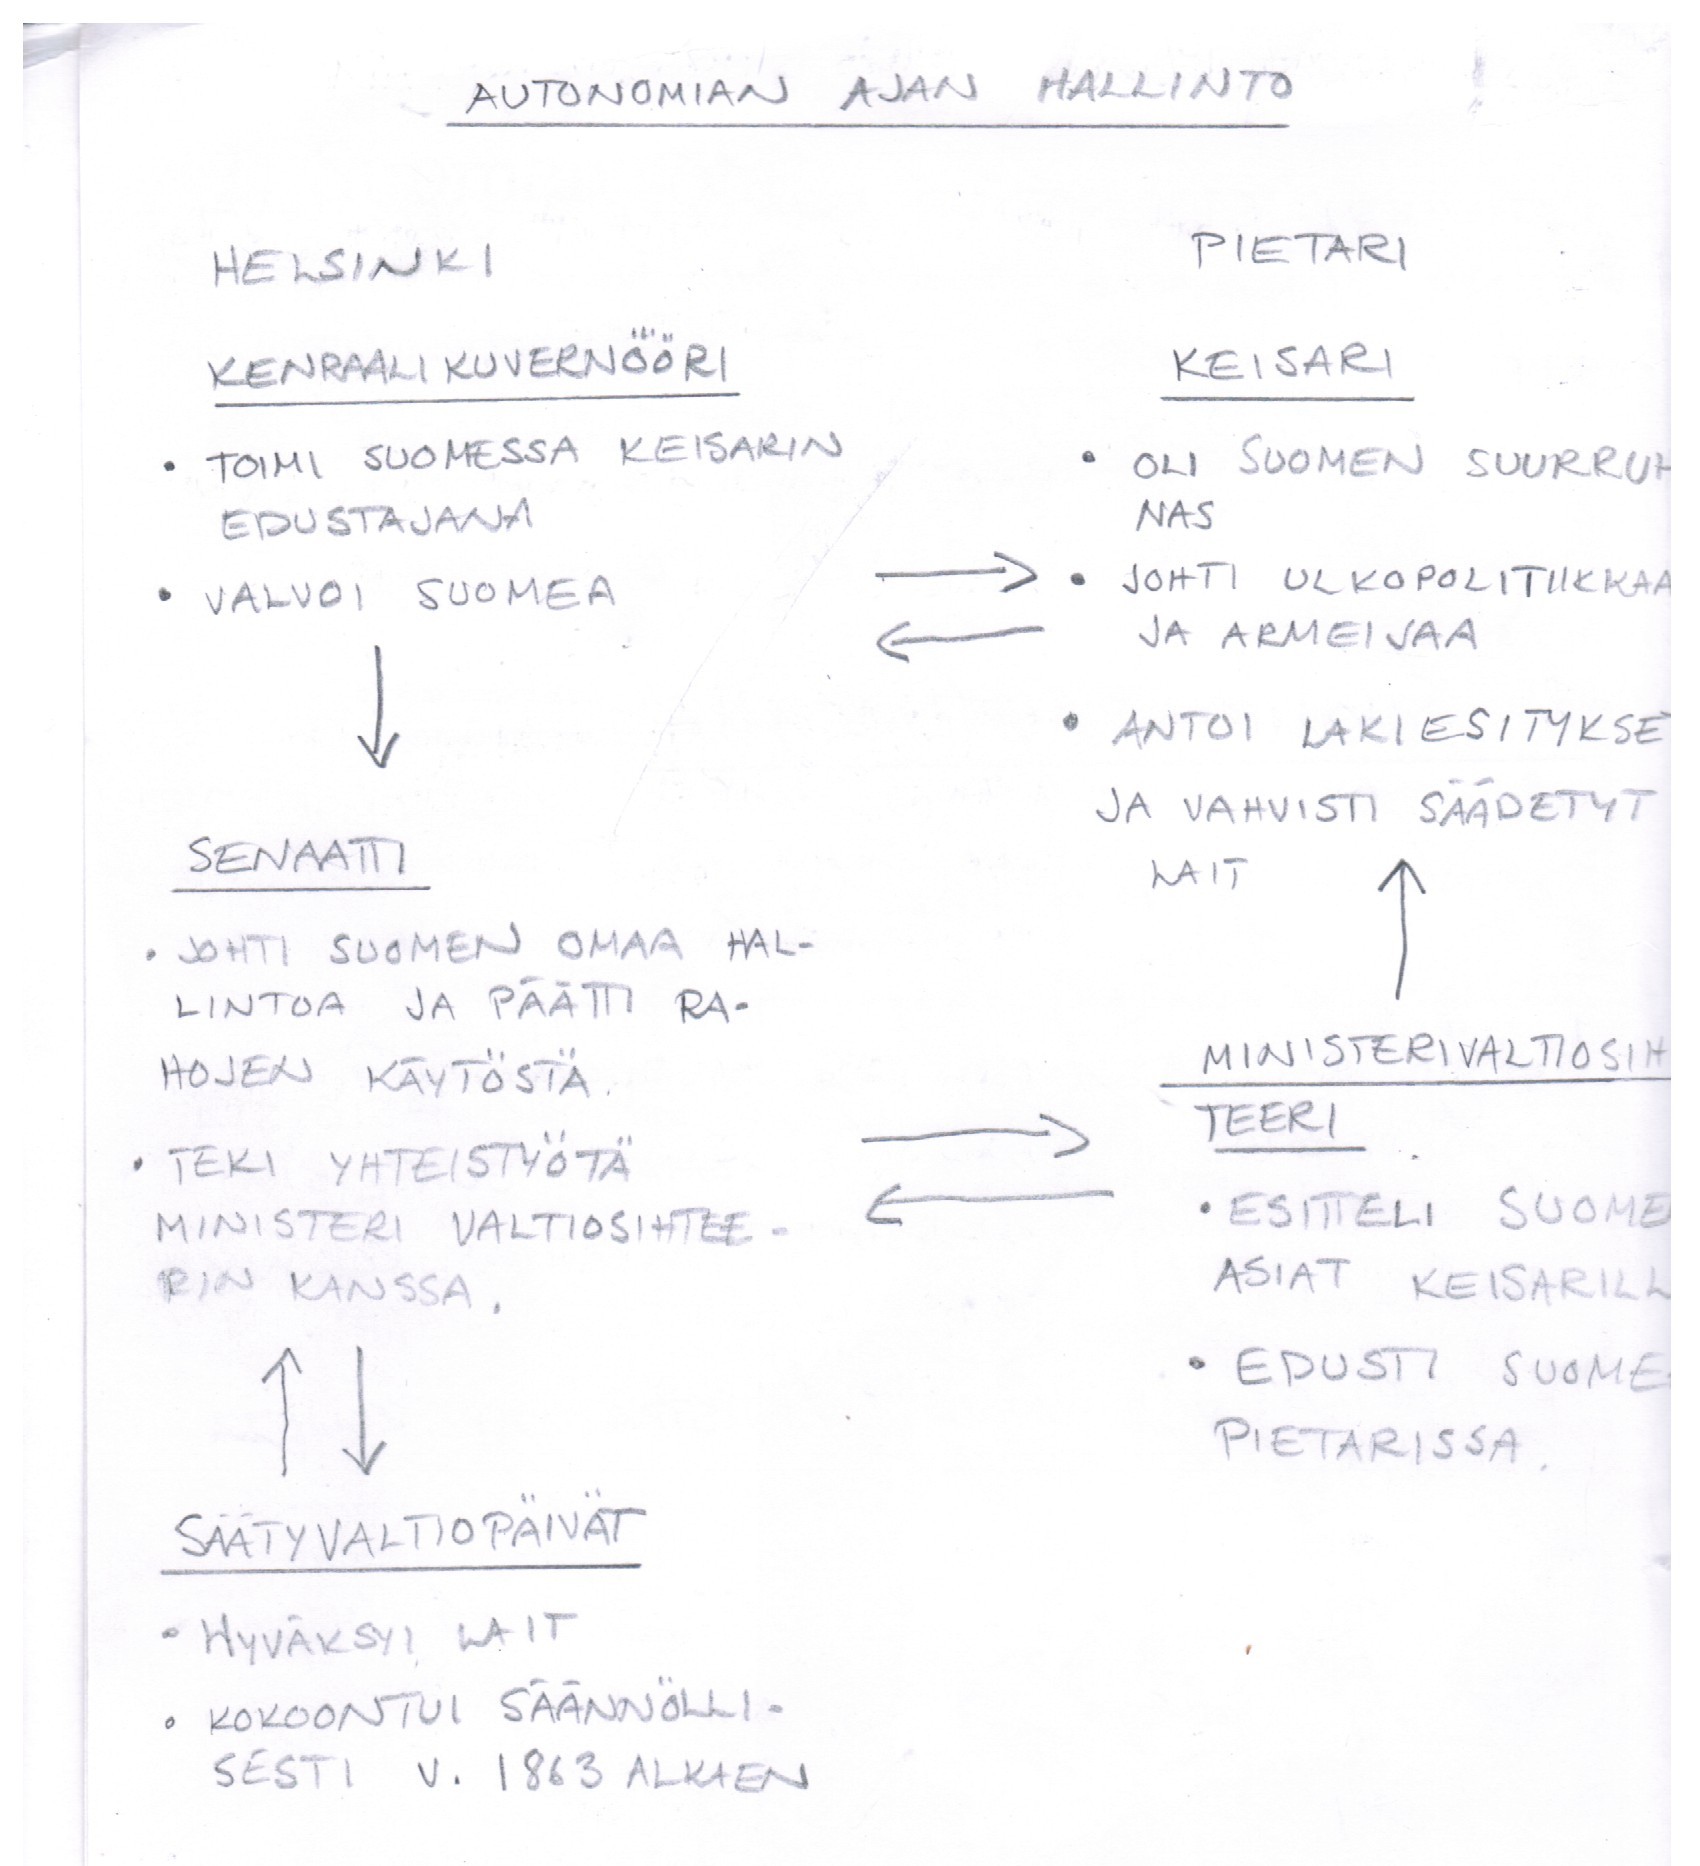 AUTONOMIAN AJAN HALLINTO
HELSINKI
KENRAALIKUVERNÖÖRI
• TOIMI SUOMESSA KEISARIN
EDUSTAJANA
• VALVOI SUOMEA
SENAATTI
• JOHTI SUOMEN OMAA HAL-
LINTOA JA PÄÄTTI RA-
HOJEN KÄYTÖSTÄ.
• TEKI YHTEISTYÖTÄ
MINISTERI VALTIOSIHTEE-
RIN KANSSA.
SÄÄTYVALTIOPÄIVÄT
• HYVÄKSYI LAIT
• KOKOONTUI SÄÄNNÖLLI-
SESTI V. 1863 ALKAEN
PIETARI
KEISARI
• OLI SUOMEN SUURRUH
NAS
• JOHTI ULKOPOLITIIKKAA
JA ARMEIJAA
• ANTOI LAKIESITYKSE
JA VAHVISTI SÄÄDETYT
LAIT
MINISTERIVALTIOSIH
TEERI
• ESITTELI SUOME
ASIAT KEISARILL
• EDUSTI SUOME
PIETARISSA.